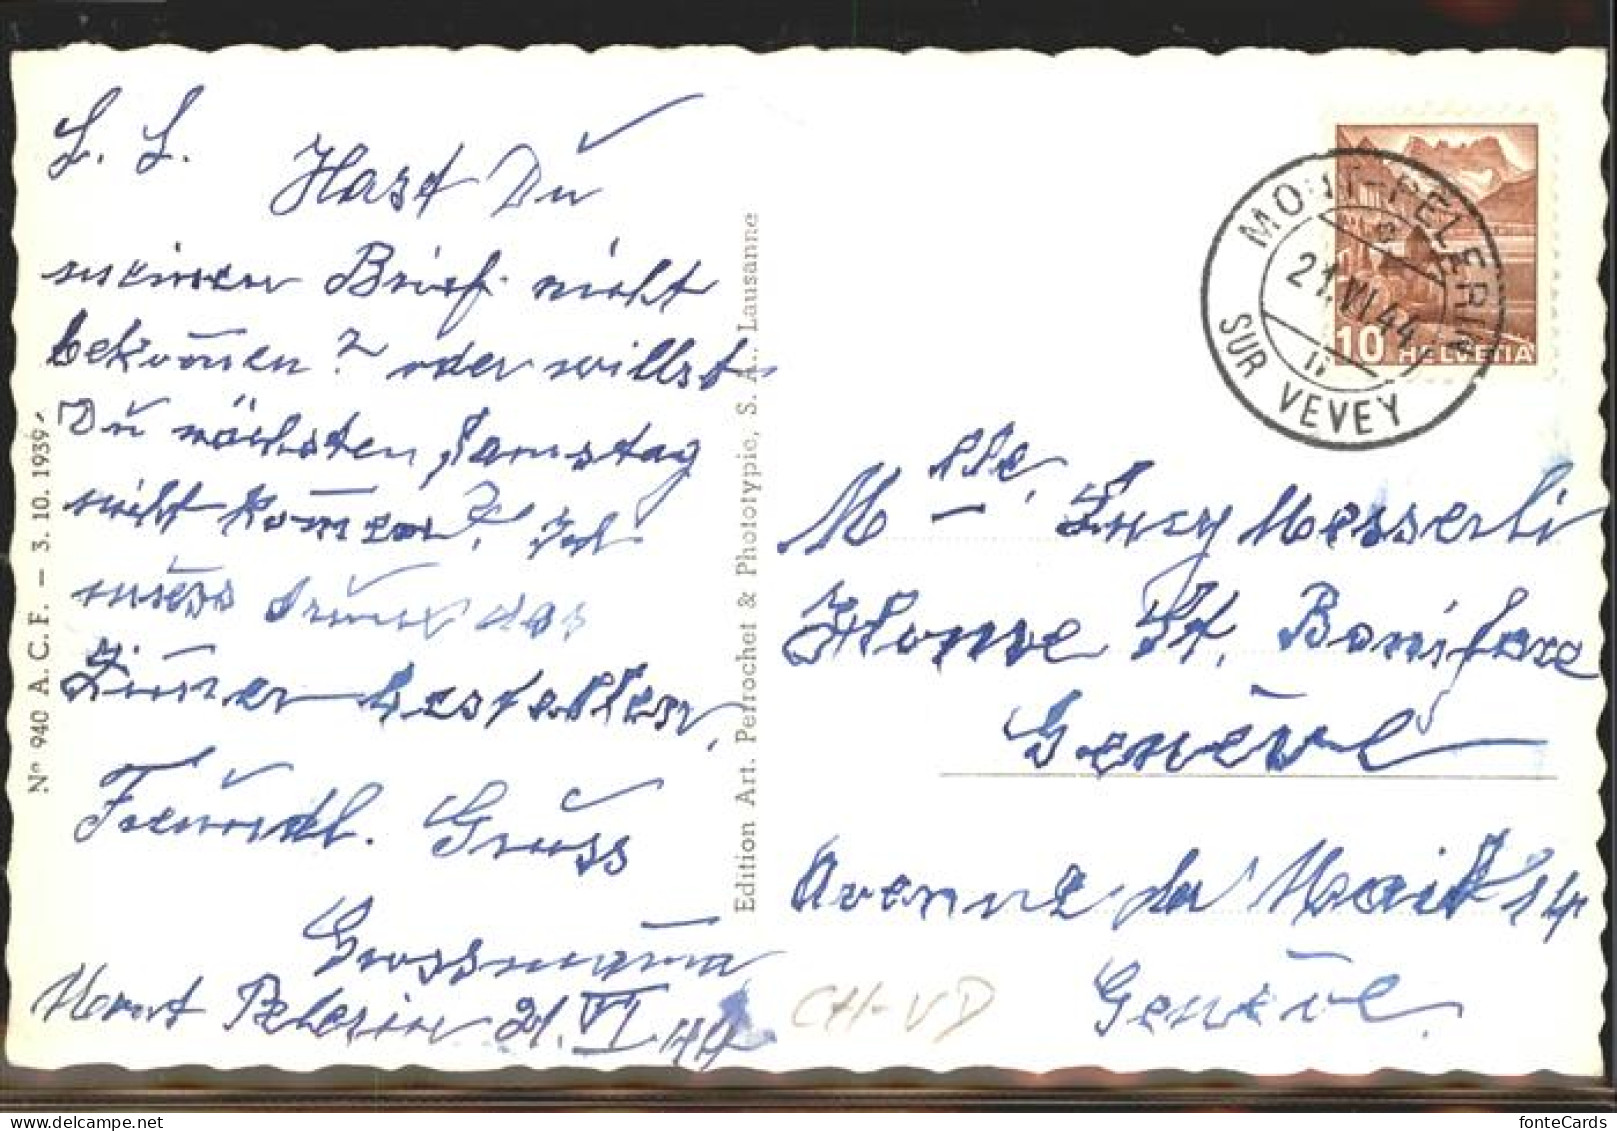 L. L. Hast Du
meinen Brief nicht
bekom̅en? oder willst
Du nächsten Samstag
nicht kom̅en? Ich
muss das
Zim̅er bestellen,
Freundl. Gruss
Grossmam̅a
Mont Pelerin 21. VI 44
Nº 940 A. C. F. — 3. 10. 1939.
Edition Art. Perrochet & Phototypie, S. A., Lausanne
MONT-PELERIN
21.VI.44
SUR VEVEY
10 HELVETIA
Mlle. Lucy Messerli
Home St. Boniface
Genève
Avenue du Mail 14
Genève.
CH-VD
fonteCards